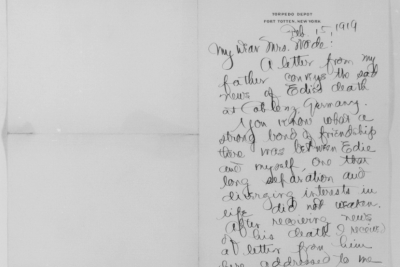 TORPEDO DEPOT
FORT TOTTEN, NEW YORK
Feb. 15, 1919
My Dear Mrs. Wade:
A letter from my
father conveys the sad
news of Edie's death
at Coblenz, Germany.
You know what a
strong bond of friendship
there was between Edie
and myself, one that
long separation and
diverging interests in
life did not weaken.
After receiving news
of his death I received
a letter from him
here addressed to me